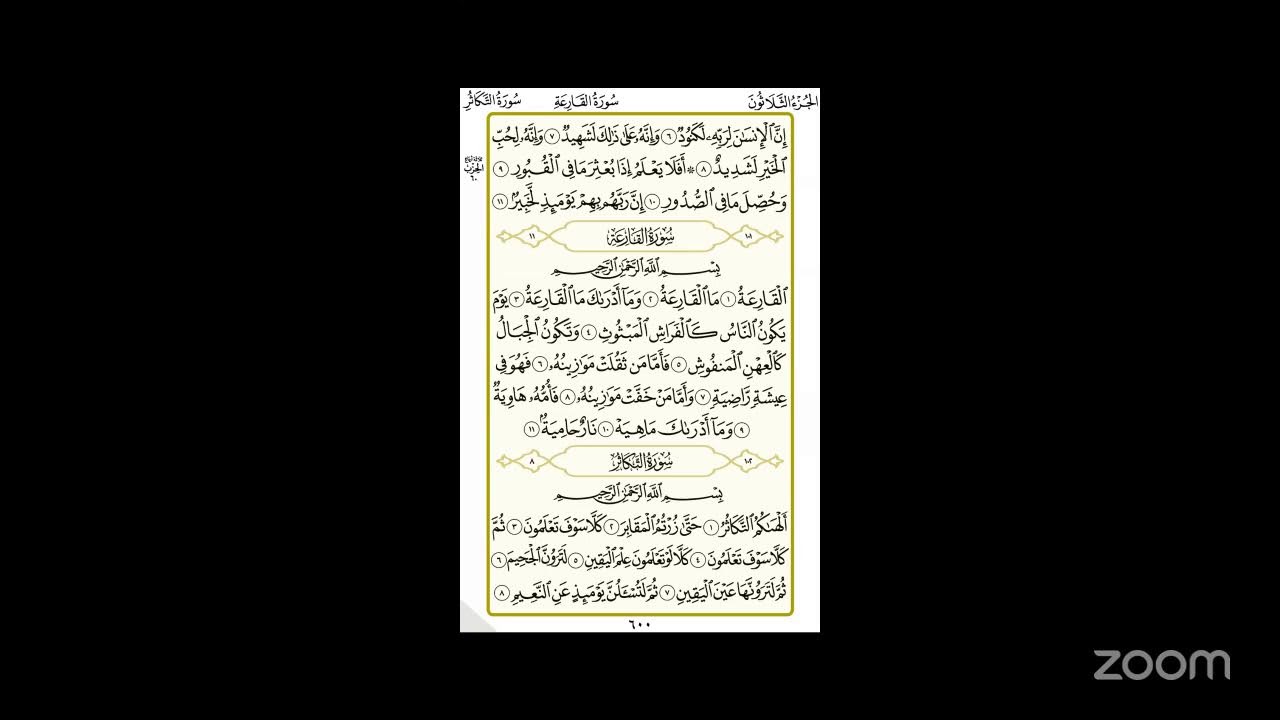 الجُزْءُ الثَّلَاثُونَ سُورَةُ القَارِعَةِ سُورَةُ التَّكَاثُرِ
إِنَّ ٱلْإِنسَٰنَ لِرَبِّهِۦ لَكَنُودٌ ٦ وَإِنَّهُۥ عَلَىٰ ذَٰلِكَ لَشَهِيدٌ ٧ وَإِنَّهُۥ لِحُبِّ
ٱلْخَيْرِ لَشَدِيدٌ ٨ ۞ أَفَلَا يَعْلَمُ إِذَا بُعْثِرَ مَا فِى ٱلْقُبُورِ ٩
الحِزْب
٦٠
وَحُصِّلَ مَا فِى ٱلصُّدُورِ ١٠ إِنَّ رَبَّهُم بِهِمْ يَوْمَئِذٍ لَّخَبِيرٌۢ ١١
١٠١ سُورَةُ القَارِعَةِ ١١
بِسْمِ ٱللَّهِ ٱلرَّحْمَٰنِ ٱلرَّحِيمِ
ٱلْقَارِعَةُ ١ مَا ٱلْقَارِعَةُ ٢ وَمَآ أَدْرَىٰكَ مَا ٱلْقَارِعَةُ ٣ يَوْمَ
يَكُونُ ٱلنَّاسُ كَٱلْفَرَاشِ ٱلْمَبْثُوثِ ٤ وَتَكُونُ ٱلْجِبَالُ
كَٱلْعِهْنِ ٱلْمَنفُوشِ ٥ فَأَمَّا مَن ثَقُلَتْ مَوَٰزِينُهُۥ ٦ فَهُوَ فِى
عِيشَةٍ رَّاضِيَةٍ ٧ وَأَمَّا مَنْ خَفَّتْ مَوَٰزِينُهُۥ ٨ فَأُمُّهُۥ هَاوِيَةٌ
٩ وَمَآ أَدْرَىٰكَ مَا هِيَهْ ١٠ نَارٌ حَامِيَةٌۢ ١١
١٠٢ سُورَةُ التَّكَاثُرِ ٨
بِسْمِ ٱللَّهِ ٱلرَّحْمَٰنِ ٱلرَّحِيمِ
أَلْهَىٰكُمُ ٱلتَّكَاثُرُ ١ حَتَّىٰ زُرْتُمُ ٱلْمَقَابِرَ ٢ كَلَّا سَوْفَ تَعْلَمُونَ ٣ ثُمَّ
كَلَّا سَوْفَ تَعْلَمُونَ ٤ كَلَّا لَوْ تَعْلَمُونَ عِلْمَ ٱلْيَقِينِ ٥ لَتَرَوُنَّ ٱلْجَحِيمَ ٦
ثُمَّ لَتَرَوُنَّهَا عَيْنَ ٱلْيَقِينِ ٧ ثُمَّ لَتُسْـَٔلُنَّ يَوْمَئِذٍ عَنِ ٱلنَّعِيمِ ٨
٦٠٠
zoom